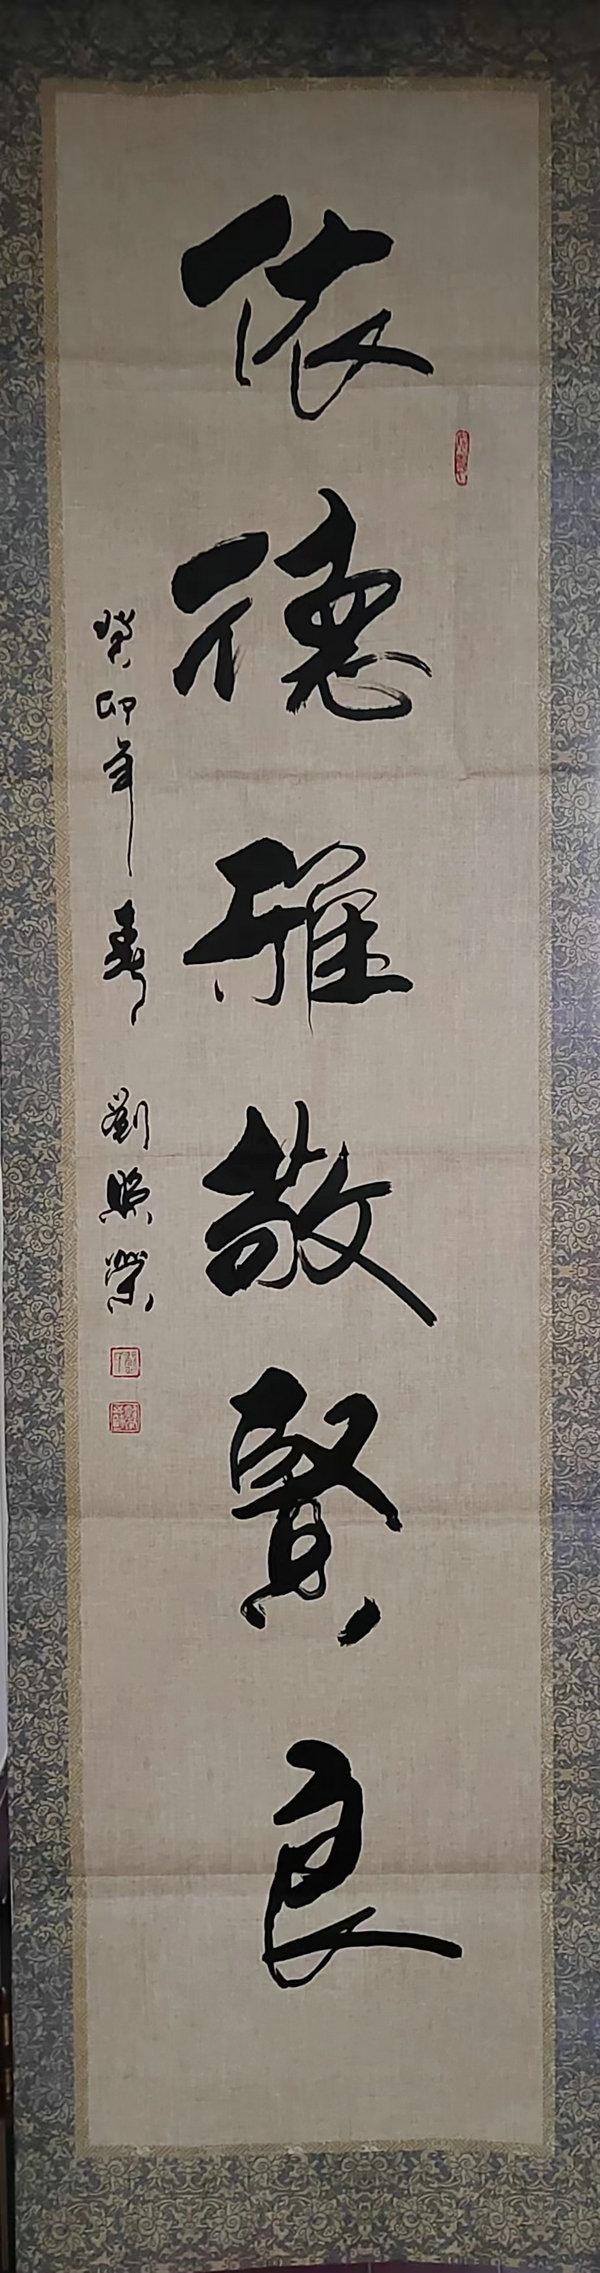 依德雅敬賢良
癸卯年春 劉照榮